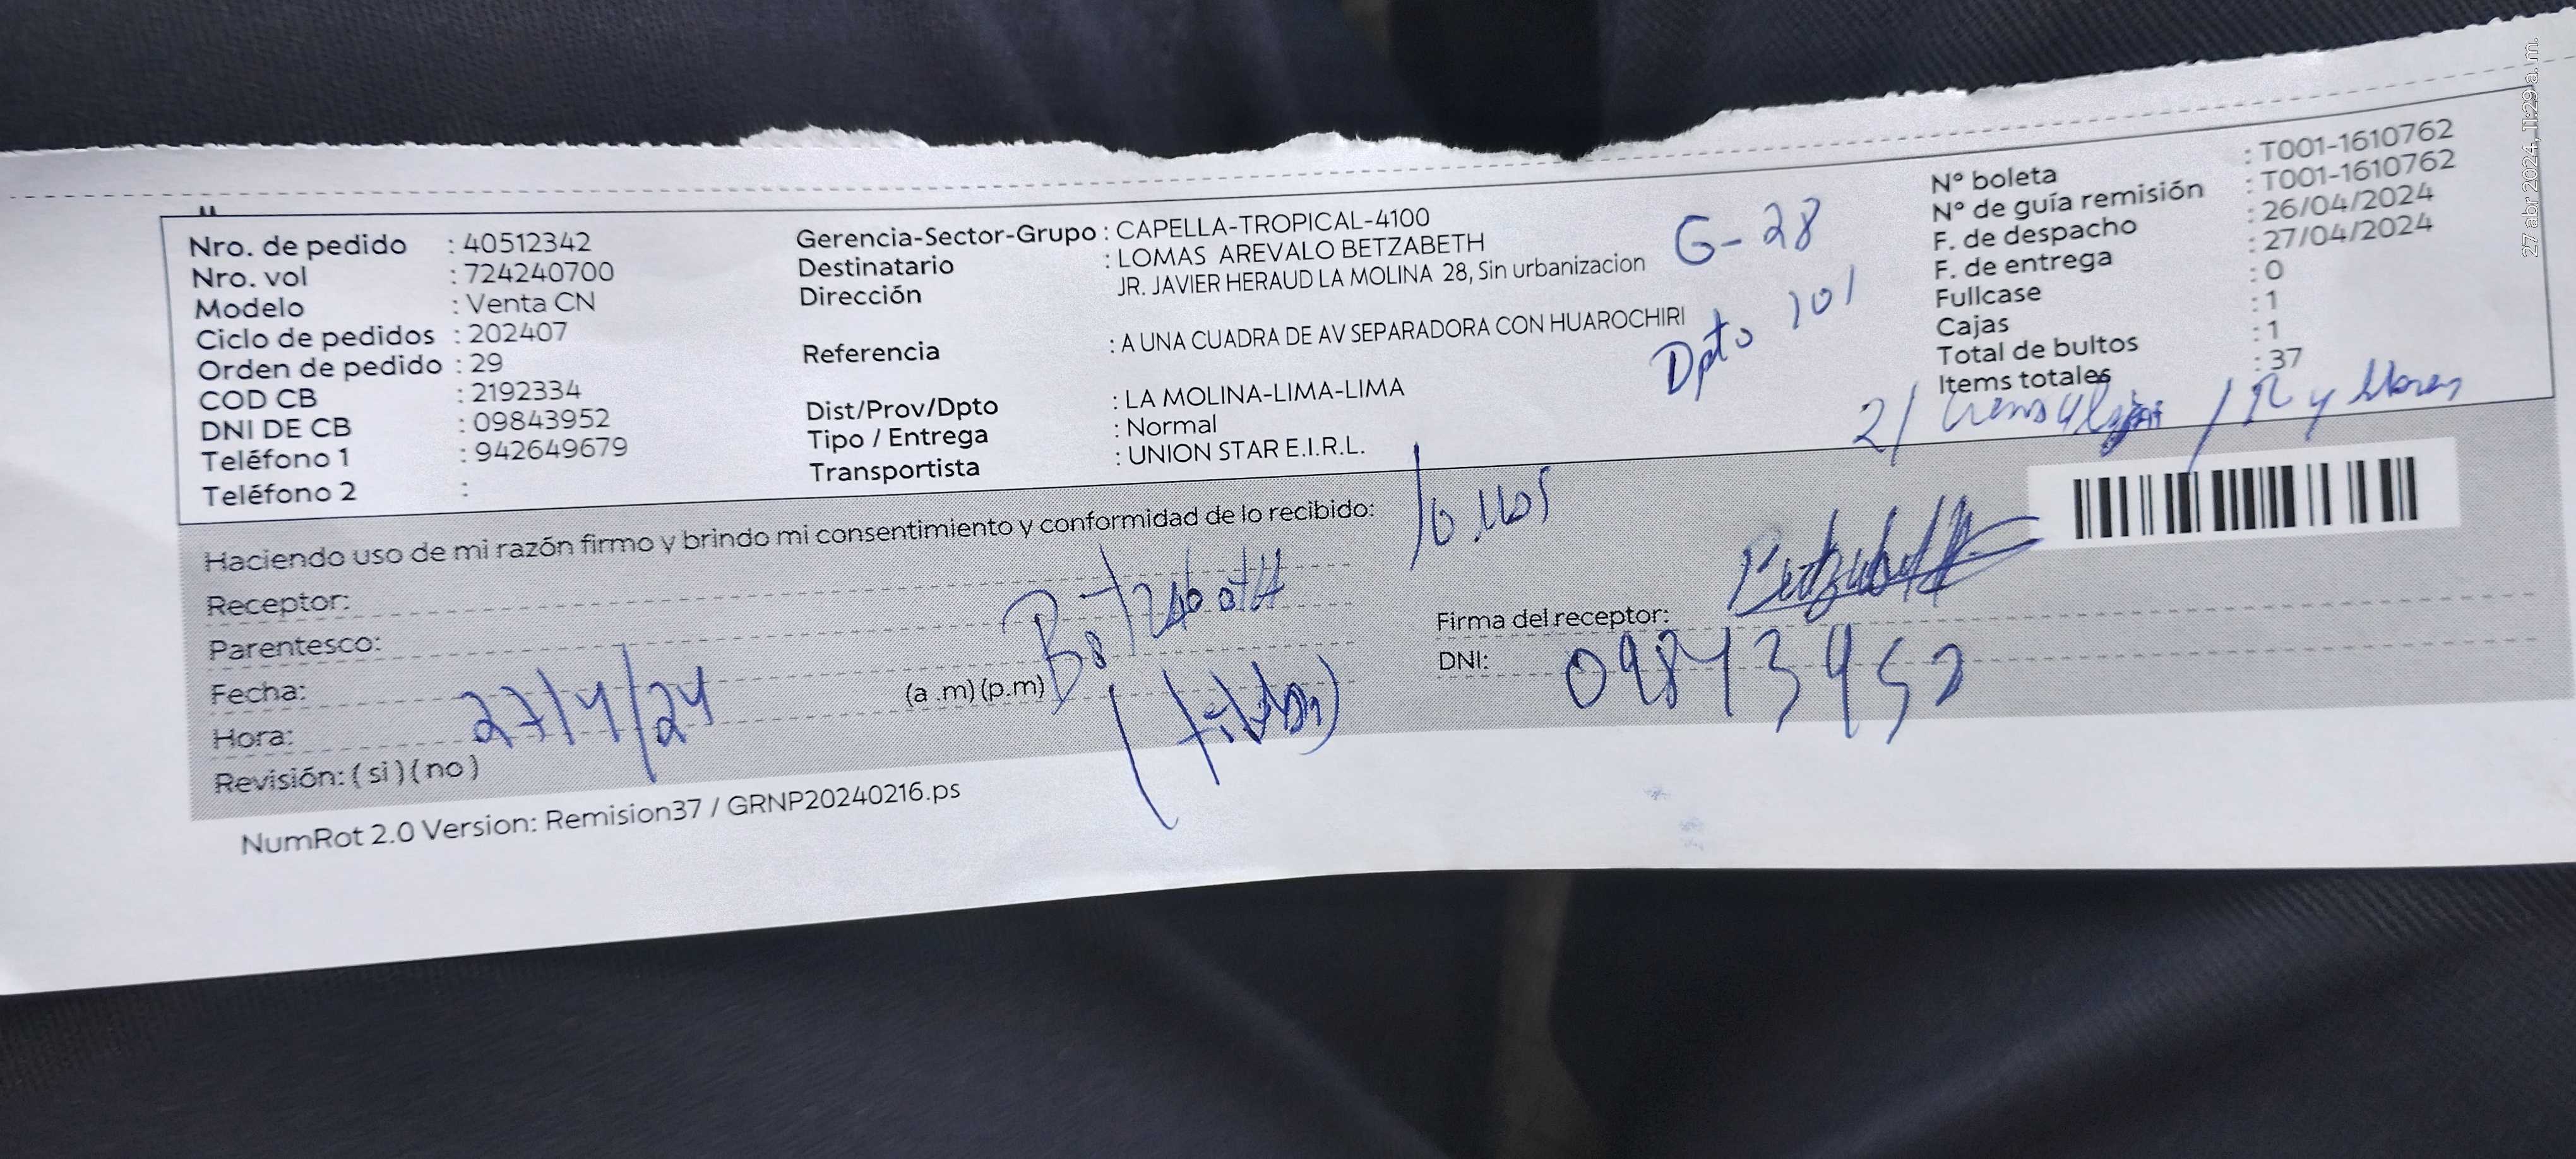 27 abr 2024, 11:29 a. m.
Nro. de pedido : 40512342
Nro. vol : 724240700
Modelo : Venta CN
Ciclo de pedidos : 202407
Orden de pedido : 29
COD CB : 2192334
DNI DE CB : 09843952
Teléfono 1 : 942649679
Teléfono 2 :
Gerencia-Sector-Grupo : CAPELLA-TROPICAL-4100
Destinatario : LOMAS AREVALO BETZABETH
Dirección JR. JAVIER HERAUD LA MOLINA 28, Sin urbanizacion
G-28
Referencia : A UNA CUADRA DE AV SEPARADORA CON HUAROCHIRI
Dpto 101
Dist/Prov/Dpto : LA MOLINA-LIMA-LIMA
Tipo / Entrega : Normal
Transportista : UNION STAR E.I.R.L.
N° boleta : T001-1610762
N° de guía remisión : T001-1610762
F. de despacho : 26/04/2024
F. de entrega : 27/04/2024
Fullcase : 0
Cajas : 1
Total de bultos : 1
Items totales : 37
Haciendo uso de mi razón firmo y brindo mi consentimiento y conformidad de lo recibido:
Receptor: Betzabeth
Parentesco:
Fecha: 27/4/24
(a .m) (p.m)
Hora:
Revisión: ( si ) ( no )
Firma del receptor: Betzabeth
DNI: 09843952
NumRot 2.0 Version: Remision37 / GRNP20240216.ps